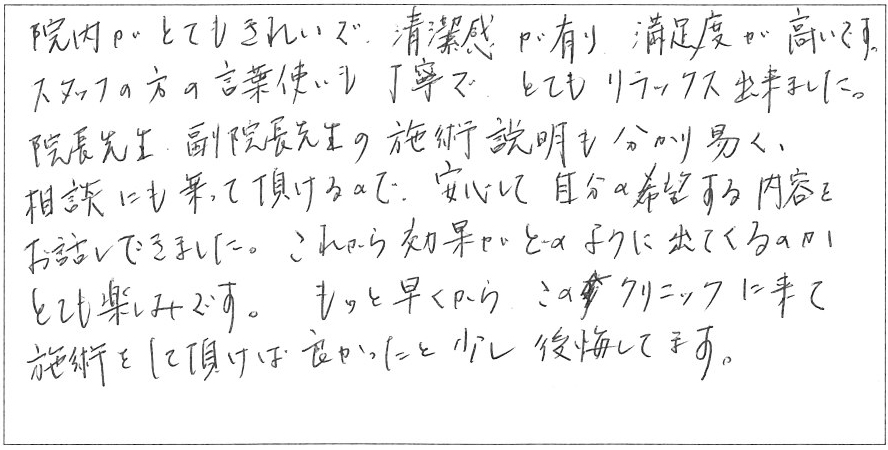 院内がとてもきれいで、清潔感が有り、満足度が高いです。
スタッフの方の言葉使いも丁寧で、とてもリラックス出来ました。
院長先生、副院長先生の施術説明も分かり易く、
相談にも乗って頂けるので、安心して自分の希望する内容を
お話しできました。これから効果がどのように出てくるのか
とても楽しみです。もっと早くから、このクリニックに来て
施術をして頂けば良かったと少し後悔してます。